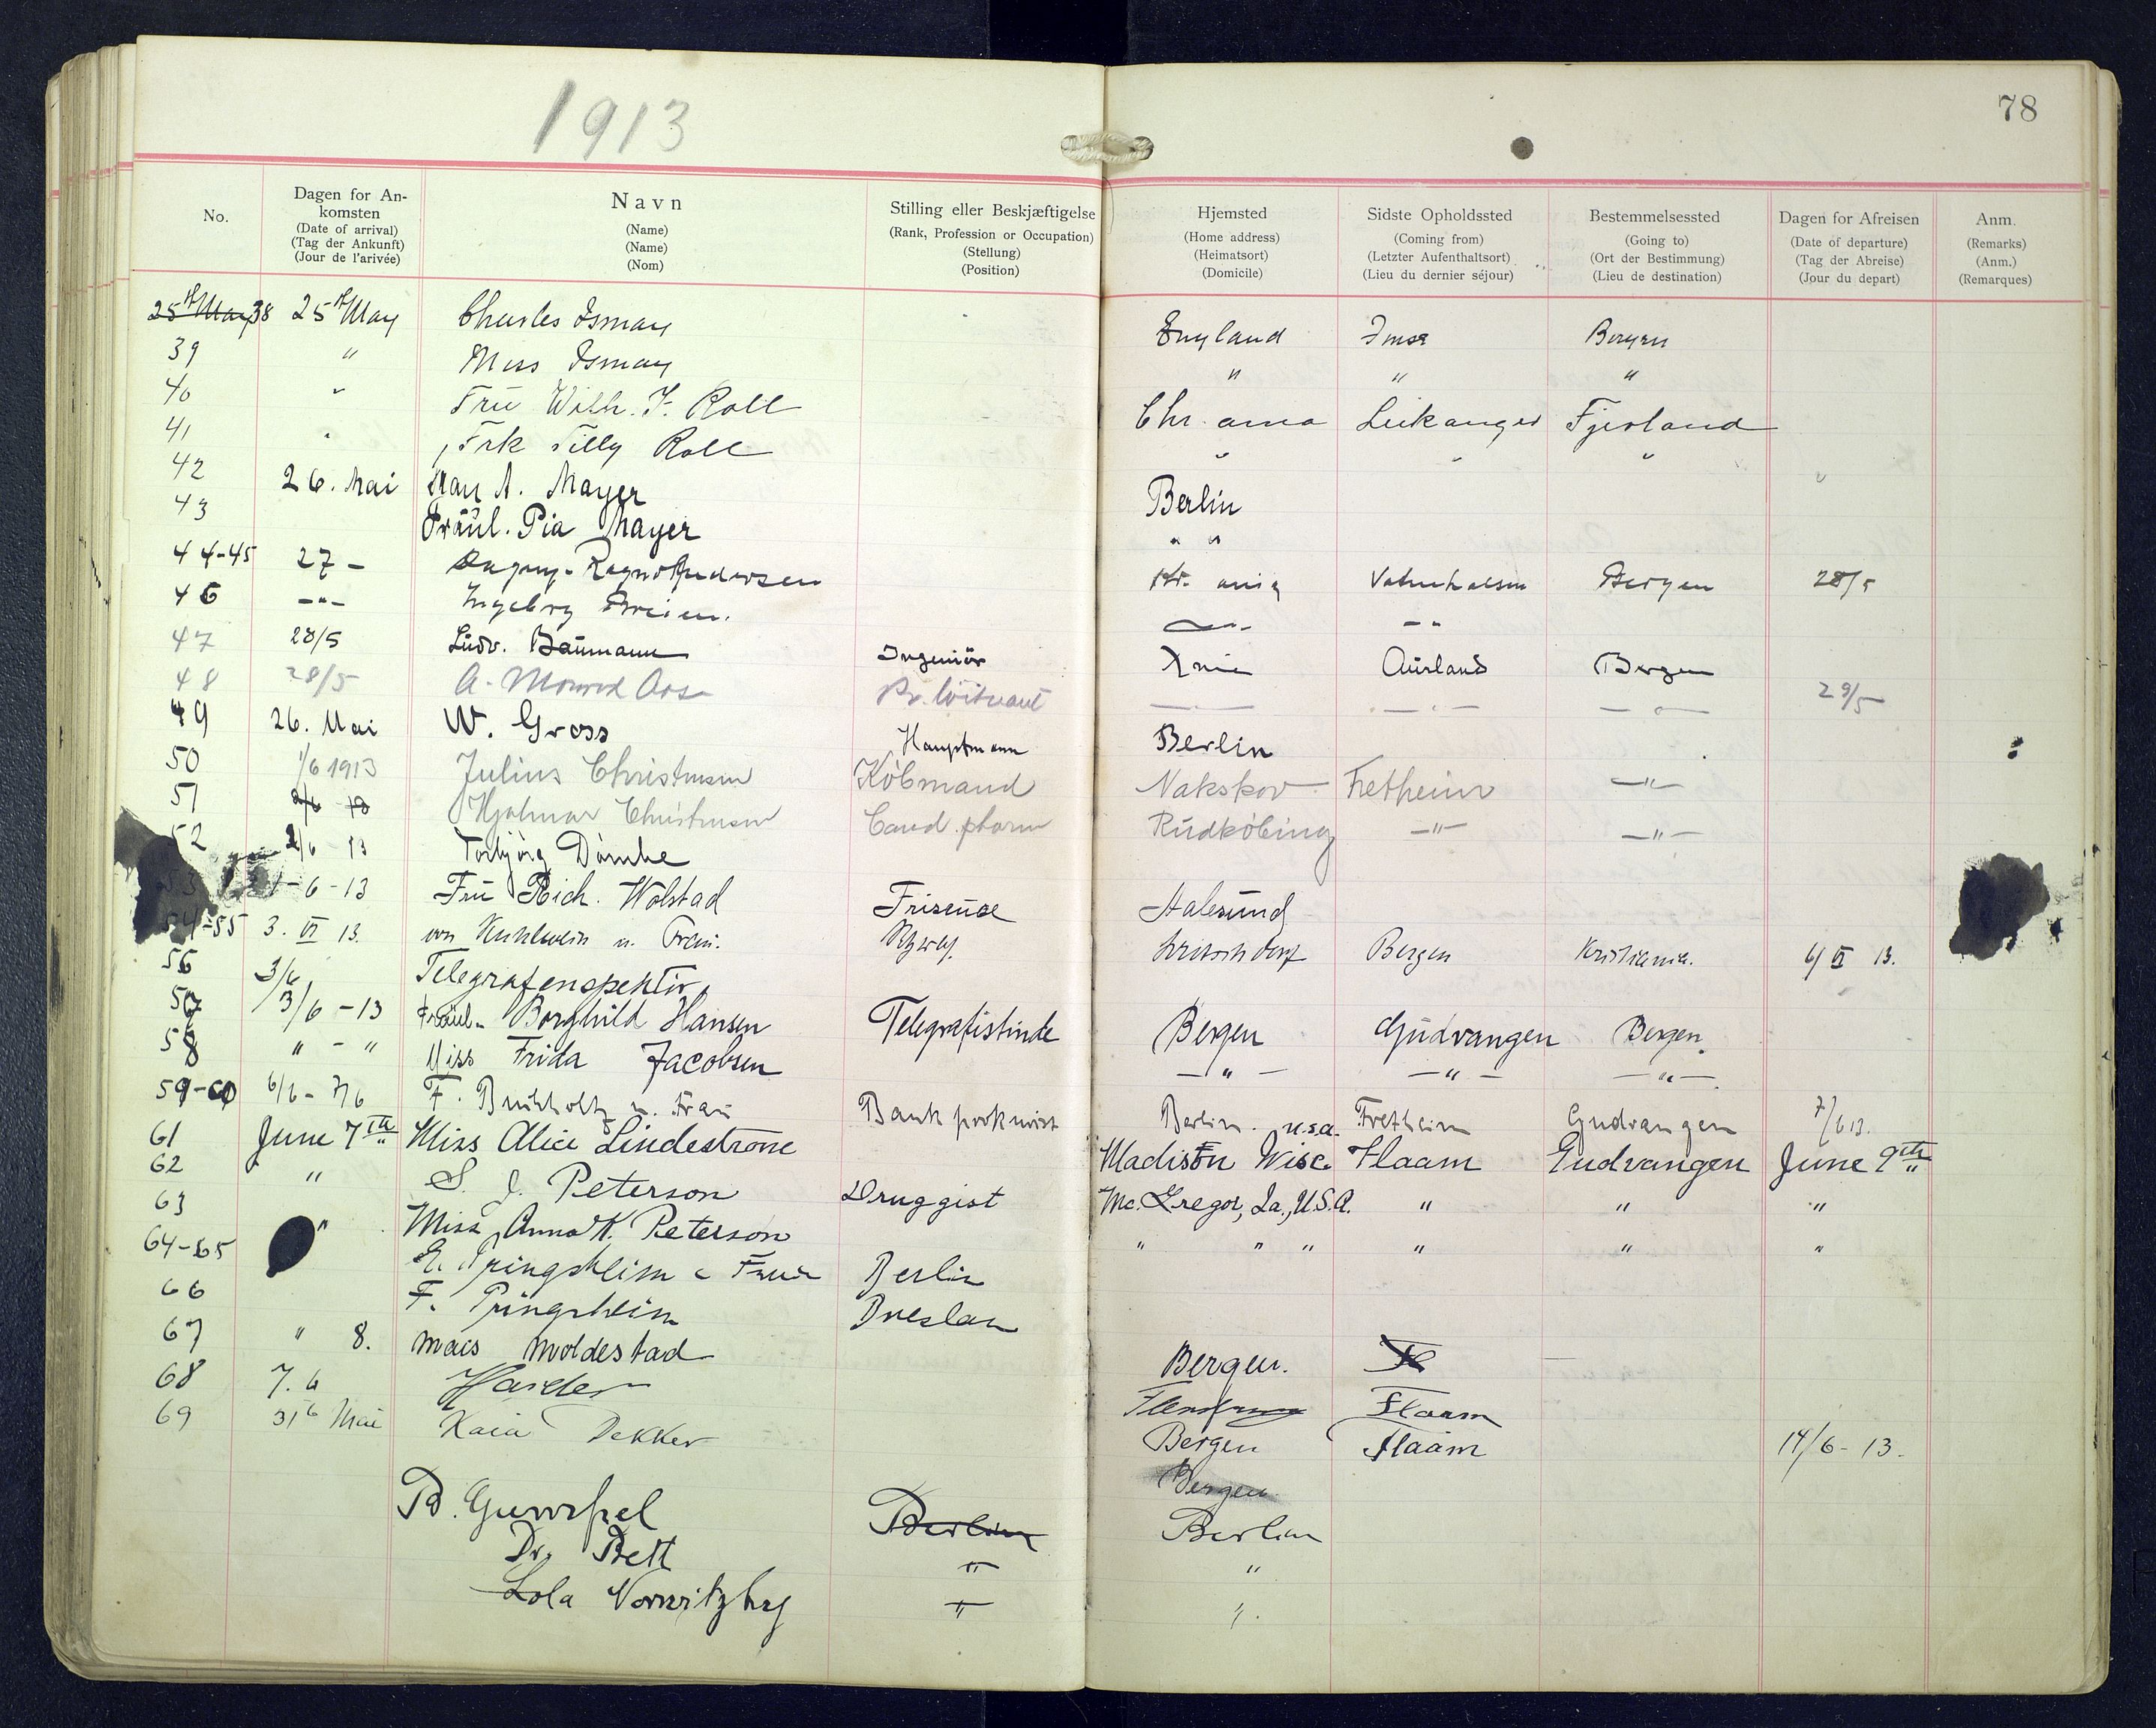 1913
78
No.
Dagen for An-
komsten
(Date of arrival)
(Tag der Ankunft)
(Jour de l'arivée)
Navn
(Name)
(Name)
(Nom)
Stilling eller Beskjæftigelse
(Rank, Profession or Occupation)
(Stellung)
(Position)
Hjemsted
(Home address)
(Heimatsort)
(Domicile)
Sidste Opholdssted
(Coming from)
(Letzter Aufenthaltsort)
(Lieu du dernier séjour)
Bestemmelsessted
(Going to)
(Ort der Bestimmung)
(Lieu de destination)
Dagen for Afreisen
(Date of departure)
(Tag der Abreise)
(Jour du depart)
Anm.
(Remarks)
(Anm.)
(Remarques)
25th May 38 25th May Charles Ismay England Bergen
39 " Miss Ismay " " "
40 " Frü Wilh. F. Roll Chr. ania Leikanger Fjerland
41 " Frk Tilly Roll " " "
42 26. Mai A. Mayer Berlin
43 Fräul. Pia Mayer " "
44-45 27 - Kr. ania Vatnehalsen Bergen 28/5
46 -"- Ingebrg -"- -"-
47 28/5 Ludv. Baumann Ingeniør Xnia Aurland Bergen
48 28/5 A. Pr. löitnant -"- -"- -"- 29/5
49 26. Mai W. Gross Hauptmann Berlin
50 1/6 1913 Julius Christensen Köbmand Nakskov Fretheim -"-
51 Hjalmar Christensen Cand. pharm Rudköbing -"- -"-
52 2/6 13 Torbjörg
53 -6-13 Frü Rich. Wolstad Friseuse Aalesund
54-55 3. VI 13. von u. Frau. Bergen Kristiania. 6/VI 13.
56 3/6 Telegrafenspektör
57 3/6-13 Fräul. Borghild Hansen Telegrafistinde Bergen Gudvangen Bergen.
58 " - " Miss Frida Jacobsen -"- -"- -"-.
59-60 6/6 - 7/6 F. Buchholtz u. Frau Bank prokurist Berlin. Fretheim Gudvangen 7/6 13.
61 June 7th Miss Alice Lindestrone Madison Wisc. U.S.A. Flaam Gudvangen June 9th
62 " S. J. Peterson Druggist Mc.Gregor, Ia., U.S.A. " " "
63 " Miss Anna K. Peterson " " " " " "
64-65 E. Pringsheim u Frau Berlin
66 F. Pringsheim Breslau
67 " 8. Moldestad Bergen. Fl
68 7. 6 Harder Flaam
69 31 Mai Kaia Dekker Bergen Flaam 14/6-13.
Bergen
Berlin Berlin
Dr. Bett " "
Lola " "